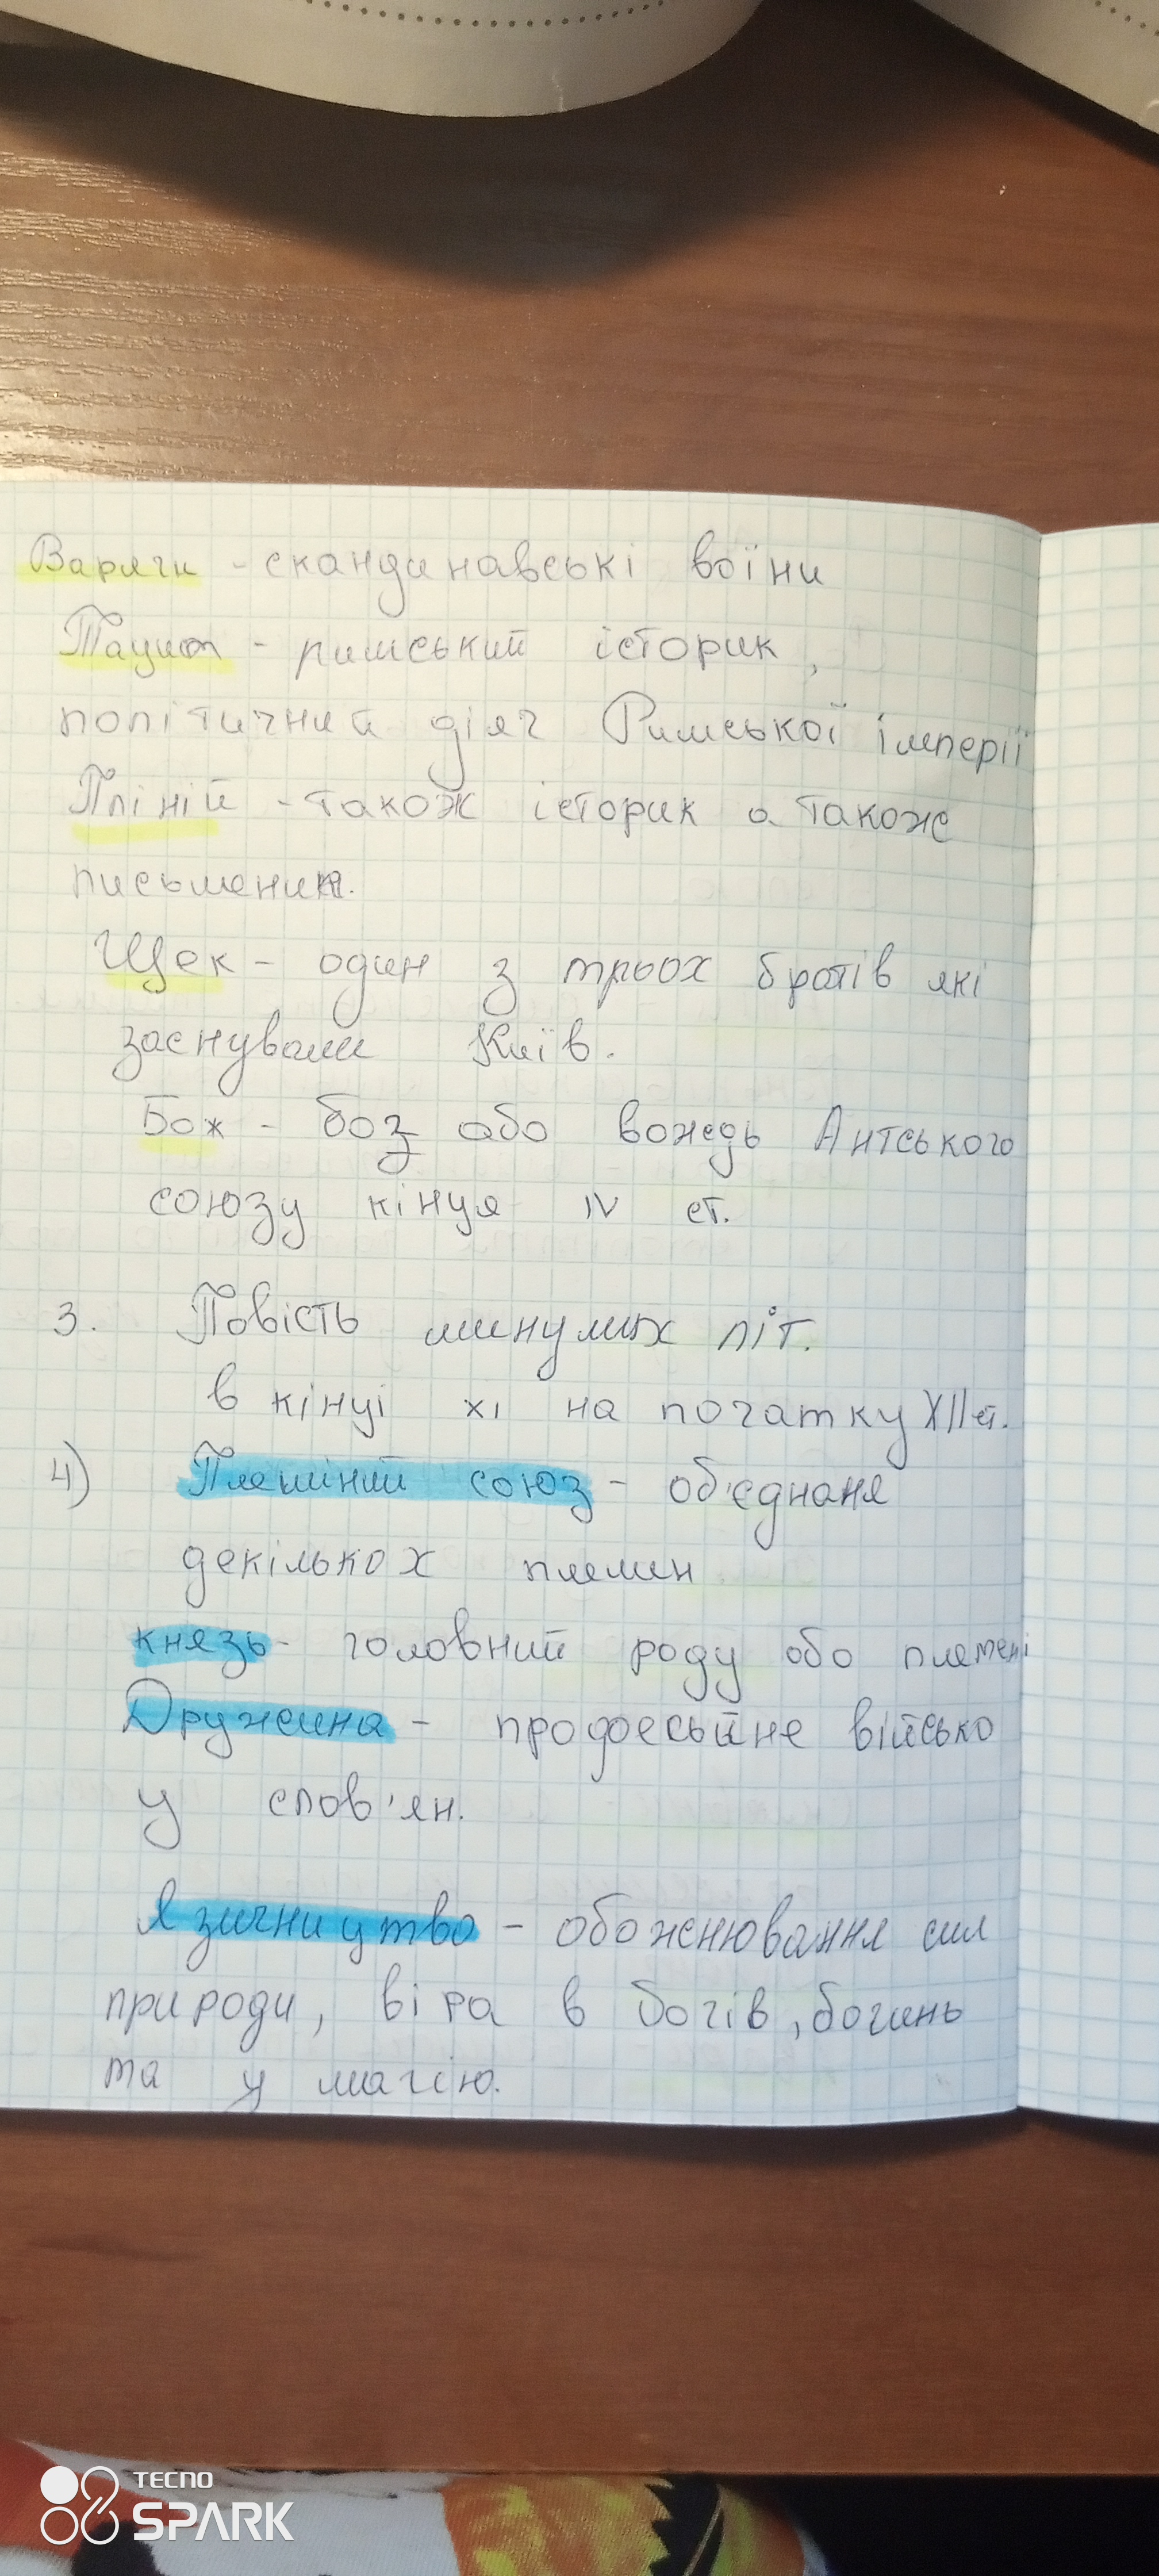 Варяги - скандинавські воїни
Тацит - римський історик,
політичний діяч Римської імперії
Пліній - також історик а також
письменик.
Щек - один з трьох братів які
заснували Київ.
Бож - боз або вождь Антського
союзу кінця IV ст.
3. Повість минулих літ.
в кінці XI на початку XII ст.
4) Племіний союз - об'єднаня
декількох племен
князь - головний роду або племені
Дружина - професыйне військо
у слов'ян.
Язичництво - обожнювання сил
природи, віра в богів, богинь
та у магію.
TECNO
SPARK